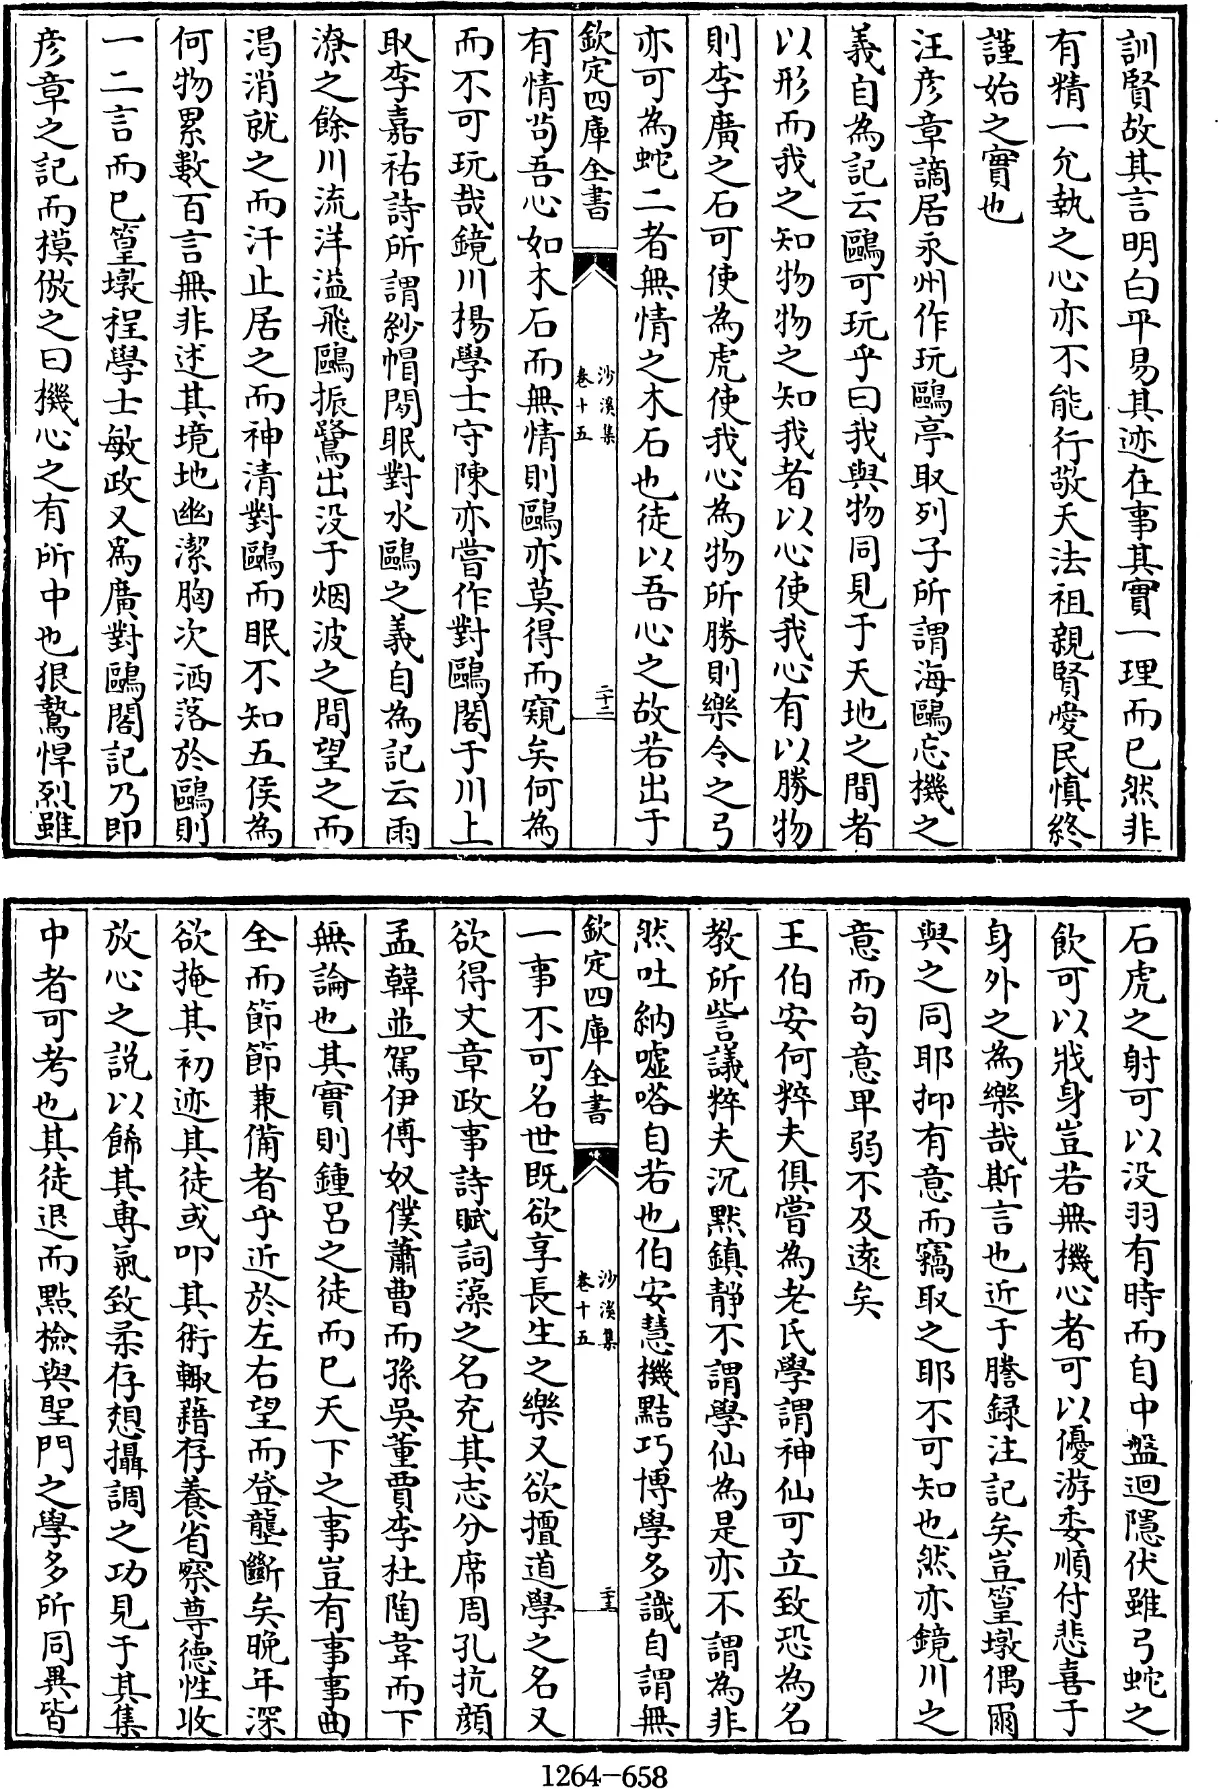 訓賢故其言明白平易其迹在事其實一理而已然非
有精一允執之心亦不能行敬天法祖親賢愛民慎終
謹始之實也
汪彦章謫居永州作玩鷗亭取列子所謂海鷗忘機之
義自為記云鷗可玩乎曰我與物同見于天地之間者
以形而我之知物物之知我者以心使我心有以勝物
則李廣之石可使為虎使我心為物所勝則樂令之弓
亦可為蛇二者無情之木石也徒以吾心之故若出于
欽定四庫全書
沙溪集
卷十五
二十二
有情茍吾心如木石而無情則鷗亦莫得而窺矣何為
而不可玩哉鏡川揚學士守陳亦嘗作對鷗閣于川上
取李嘉祐詩所謂紗帽閑眠對水鷗之義自為記云雨
潦之餘川流洋溢飛鷗振鷺出没于烟波之間望之而
渴消就之而汗止居之而神清對鷗而眠不知五侯為
何物累數百言無非述其境地幽潔胸次洒落於鷗則
一二言而已篁墩程學士敏政又為廣對鷗閣記乃即
彦章之記而摸倣之曰機心之有所中也狠鷙悍烈雖
石虎之射可以没羽有時而自中盤迴隱伏雖弓蛇之
飲可以戕身豈若無機心者可以優游委順付悲喜于
身外之為樂哉斯言也近于謄録注記矣豈篁墩偶爾
與之同耶抑有意而竊取之耶不可知也然亦鏡川之
意而句意卑弱不及逺矣
王伯安何粹夫俱嘗為老氏學謂神仙可立致恐為名
教所訾議粹夫沉默鎮靜不謂學仙為是亦不謂為非
然吐納嘘嗒自若也伯安慧機點巧博學多識自謂無
欽定四庫全書
沙溪集
卷十五
二十三
一事不可名世既欲享長生之樂又欲擅道學之名又
欲得文章政事詩賦詞藻之名充其志分席周孔抗顔
孟韓並駕伊傅奴僕蕭曹而孫吳董賈李杜陶韋而下
無論也其實則鍾吕之徒而已天下之事豈有事事曲
全而節節兼備者乎近於左右望而登壟斷矣晩年深
欲掩其初迹其徒或叩其術輙藉存養省察尊德性收
放心之説以飾其專氣致柔存想攝調之功見于其集
中者可考也其徒退而點檢與聖門之學多所同異皆
1264-658